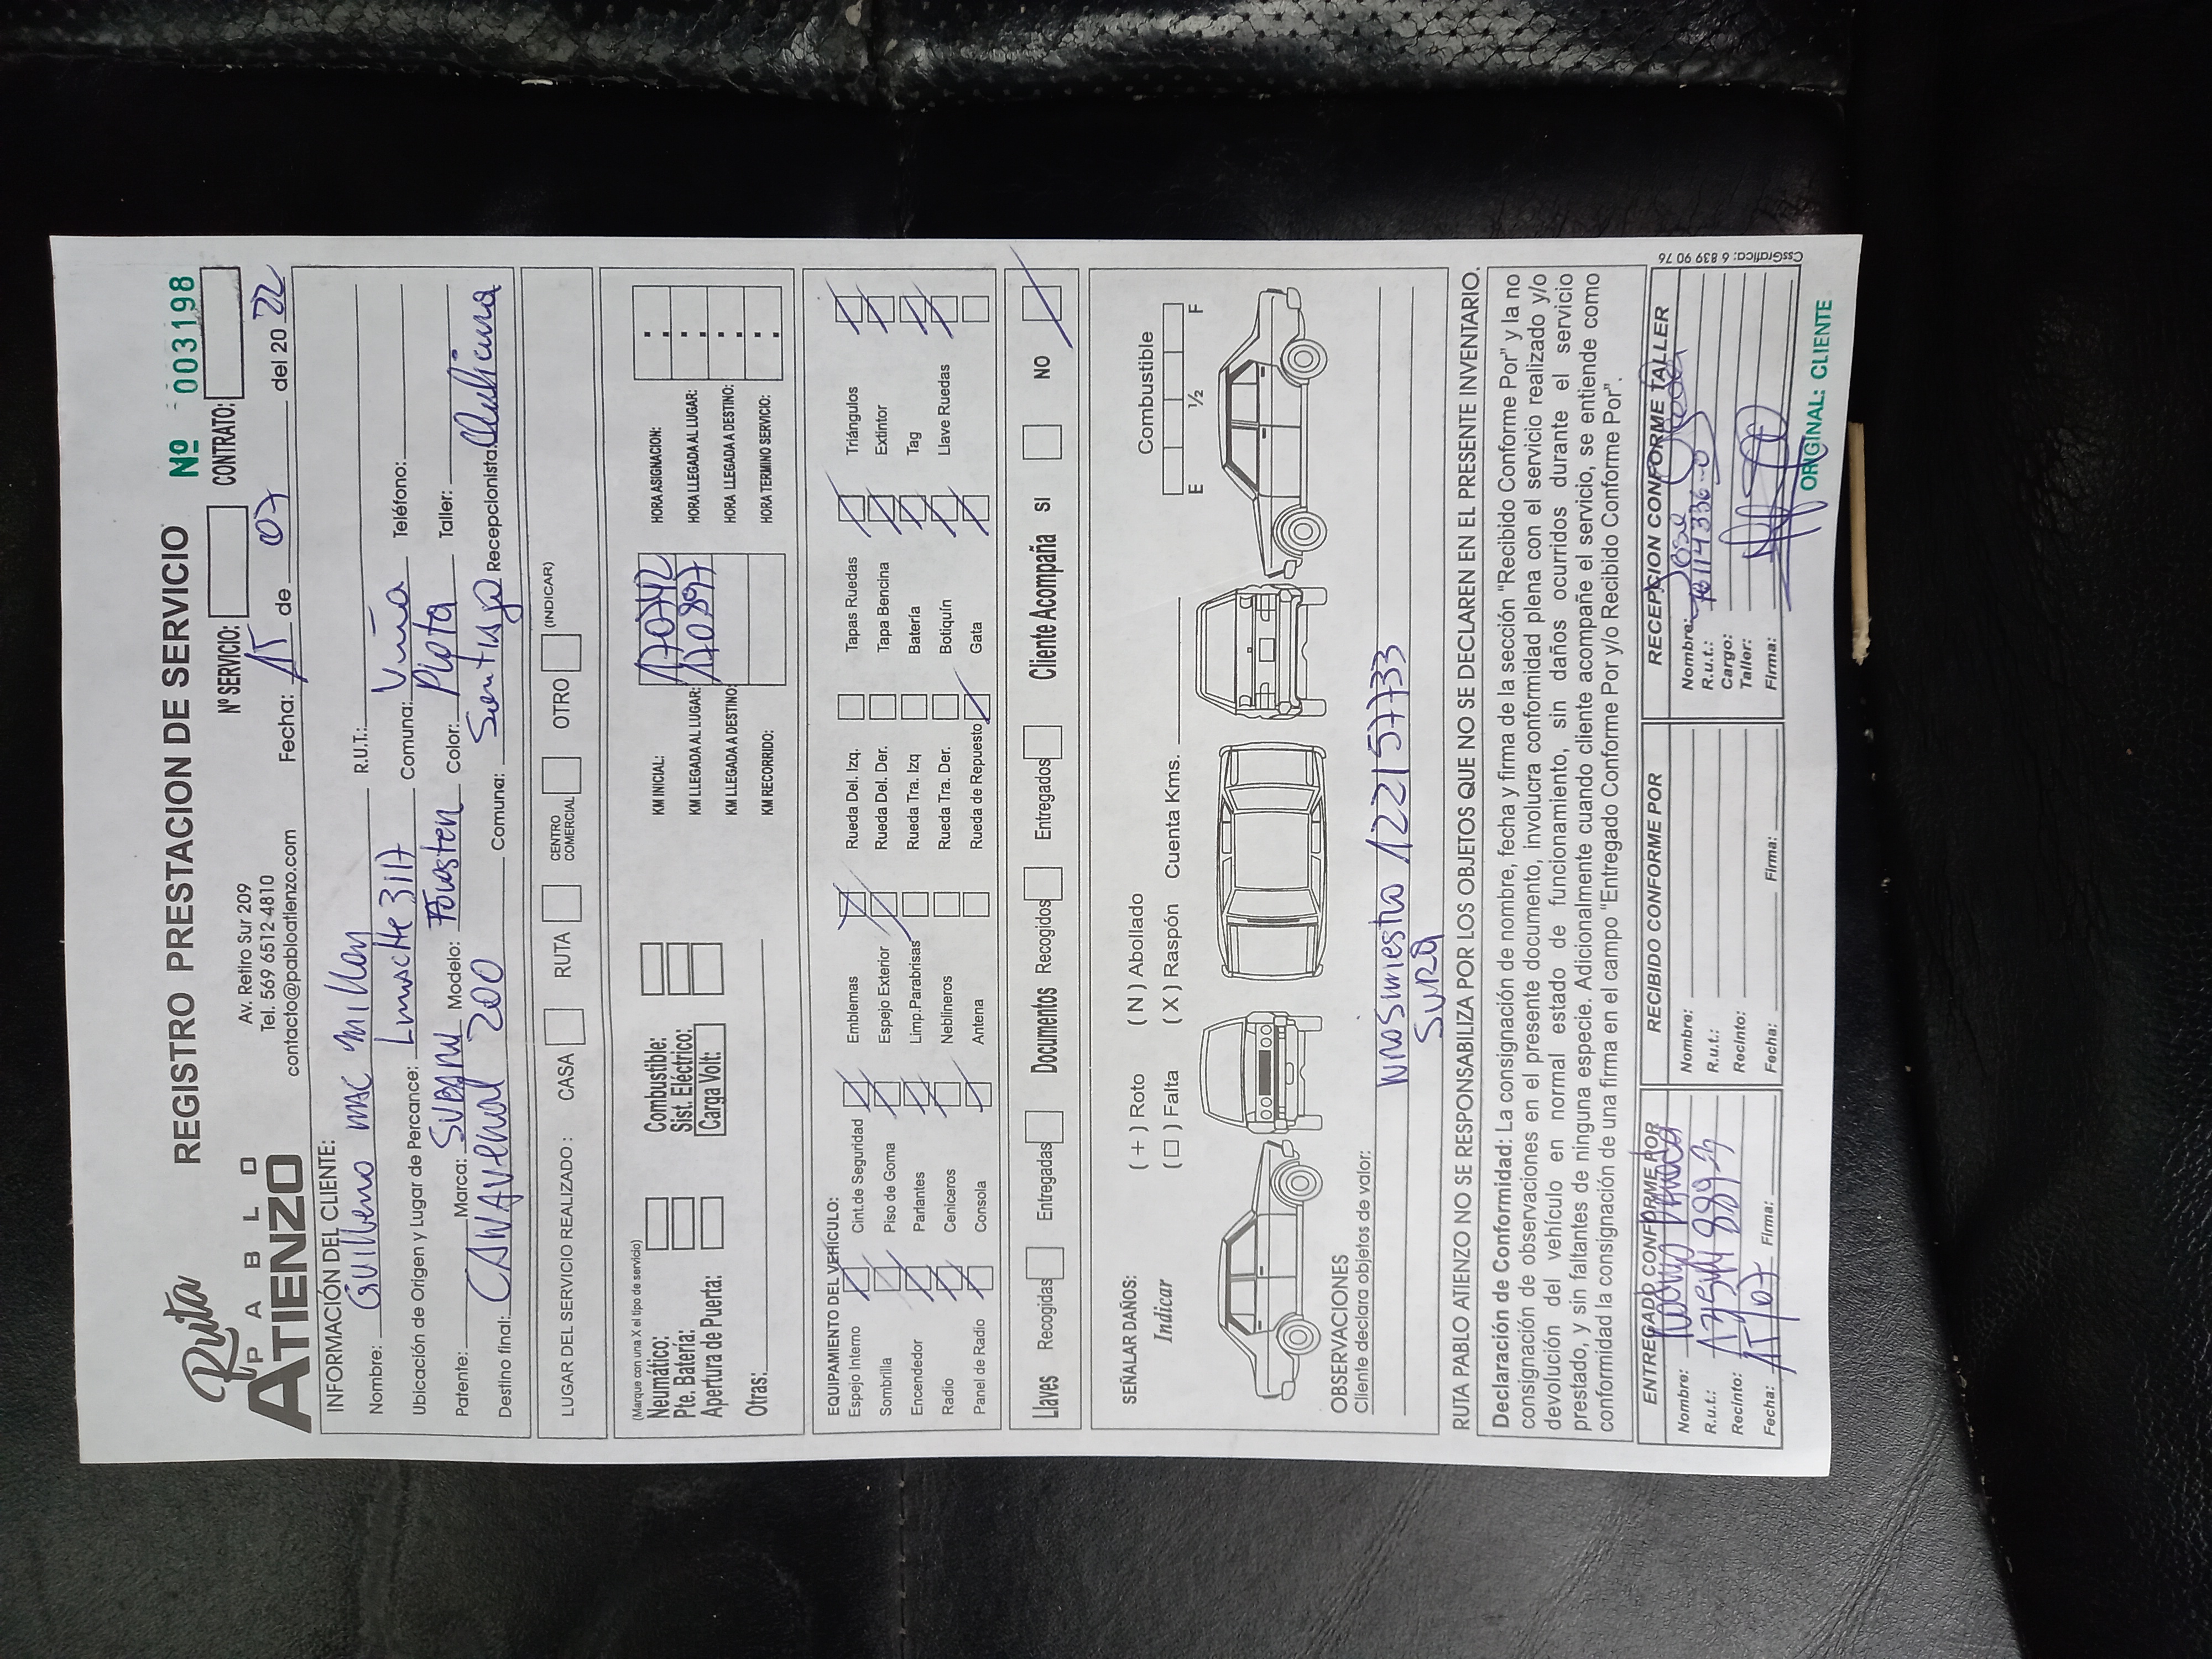 Ruta
PABLO
ATIENZO
REGISTRO PRESTACION DE SERVICIO
Nº 003198
Av. Retiro Sur 209
Tel. 569 6512 4810
contacto@pabloatienzo.com
Nº SERVICIO: CONTRATO:
Fecha: 15 de 07 del 20 22
INFORMACIÓN DEL CLIENTE:
Nombre: Guillermo mac millan R.U.T.:
Ubicación de Origen y Lugar de Percance: Limache 3117 Comuna: Viña Teléfono:
Patente: Marca: SUBARU Modelo: Forester Color: Plata Taller:
Destino final: CAÑAVERAL 200 Comuna: Santiago Recepcionista:
LUGAR DEL SERVICIO REALIZADO: CASA RUTA CENTRO COMERCIAL OTRO (INDICAR)
(Marque con una X el tipo de servicio)
Neumático: Combustible: KM INICIAL: 170742 HORA ASIGNACION:
Pte. Batería: Sist. Eléctrico: KM LLEGADA AL LUGAR: 170897 HORA LLEGADA AL LUGAR:
Apertura de Puerta: Carga Volt: KM LLEGADA A DESTINO: HORA LLEGADA A DESTINO:
Otras: KM RECORRIDO: HORA TERMINO SERVICIO:
EQUIPAMIENTO DEL VEHÍCULO:
Espejo Interno Cint. de Seguridad Emblemas Rueda Del. Izq. Tapas Ruedas Triángulos
Sombrilla Piso de Goma Espejo Exterior Rueda Del. Der. Tapa Bencina Extintor
Encendedor Parlantes Limp. Parabrisas Rueda Tra. Izq Batería Tag
Radio Ceniceros Neblineros Rueda Tra. Der. Botiquín Llave Ruedas
Panel de Radio Consola Antena Rueda de Repuesto Gata
Llaves Recogidas Entregadas Documentos Recogidos Entregados Cliente Acompaña SI NO
SEÑALAR DAÑOS: ( + ) Roto ( N ) Abollado Combustible
Indicar ( □ ) Falta ( X ) Raspón Cuenta Kms. E ½ F
OBSERVACIONES
Cliente declara objetos de valor:
122157733
SURA
RUTA PABLO ATIENZO NO SE RESPONSABILIZA POR LOS OBJETOS QUE NO SE DECLAREN EN EL PRESENTE INVENTARIO.
Declaración de Conformidad: La consignación de nombre, fecha y firma de la sección “Recibido Conforme Por” y la no
consignación de observaciones en el presente documento, involucra conformidad plena con el servicio realizado y/o
devolución del vehículo en normal estado de funcionamiento, sin daños ocurridos durante el servicio
prestado, y sin faltantes de ninguna especie. Adicionalmente cuando cliente acompañe el servicio, se entiende como
conformidad la consignación de una firma en el campo “Entregado Conforme Por y/o Recibido Conforme Por”.
ENTREGADO CONFORME POR
Nombre:
R.u.t.:
Recinto:
Fecha: 15/07 Firma:
RECIBIDO CONFORME POR
Nombre:
R.u.t.:
Recinto:
Fecha: Firma:
RECEPCION CONFORME TALLER
Nombre: Jose
R.u.t.:
Cargo:
Taller:
Firma:
CssGrafica: 6 839 90 76
ORIGINAL: CLIENTE